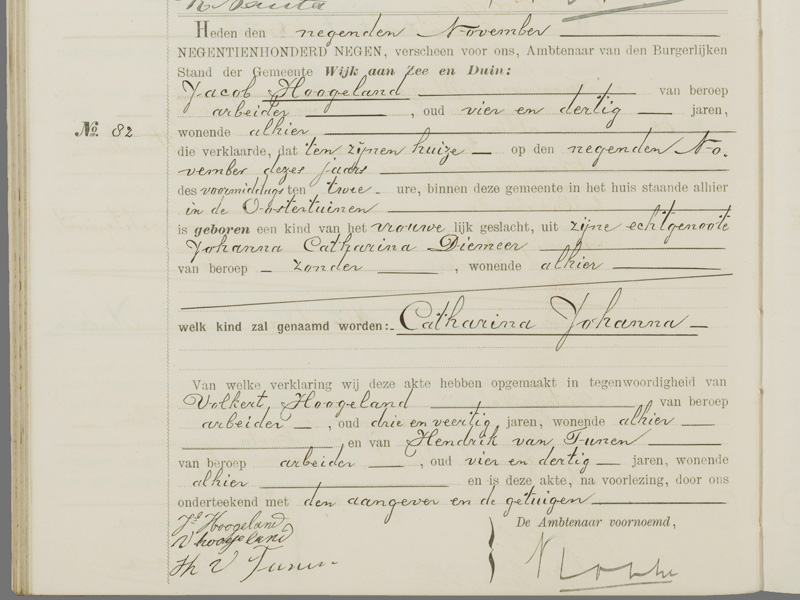 Heden den negenden November
NEGENTIENHONDERD NEGEN, verscheen voor ons, Ambtenaar van den Burgerlijken
Stand der Gemeente Wijk aan Zee en Duin:
Jacob Hoogeland van beroep
arbeider, oud vier en dertig jaren,
No 82
wonende alhier
die verklaarde, dat ten zijnen huize op den negenden No-
vember dezes jaars
des voormiddags ten twee ure, binnen deze gemeente in het huis staande alhier
in de Oostertuinen
is geboren een kind van het vrouwelijk geslacht, uit zijne echtgenoote
Johanna Catharina Diemeer
van beroep zonder, wonende alhier
welk kind zal genaamd worden: Catharina Johanna
Van welke verklaring wij deze akte hebben opgemaakt in tegenwoordigheid van
Volkert Hoogeland van beroep
arbeider, oud drie en veertig jaren, wonende alhier
en van Hendrik van Tunen
van beroep arbeider, oud vier en dertig jaren, wonende
alhier en is deze akte, na voorlezing, door ons
onderteekend met den aangever en de getuigen
Jb Hoogeland
V hoogeland
H V Tunen
De Ambtenaar voornoemd,